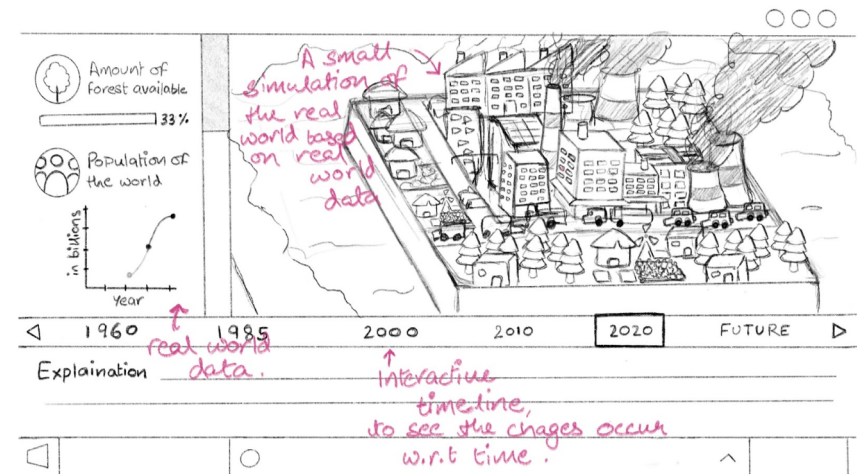 Amount of
forest available
33%
Population of
the world
in billions
Year
real world
data.
A small
simulation of
the real
world based
on real
world
data
1960
1985
2000
2010
2020
FUTURE
Explaination
Interactive
timeline,
to see the chages occur
w.r.t time.